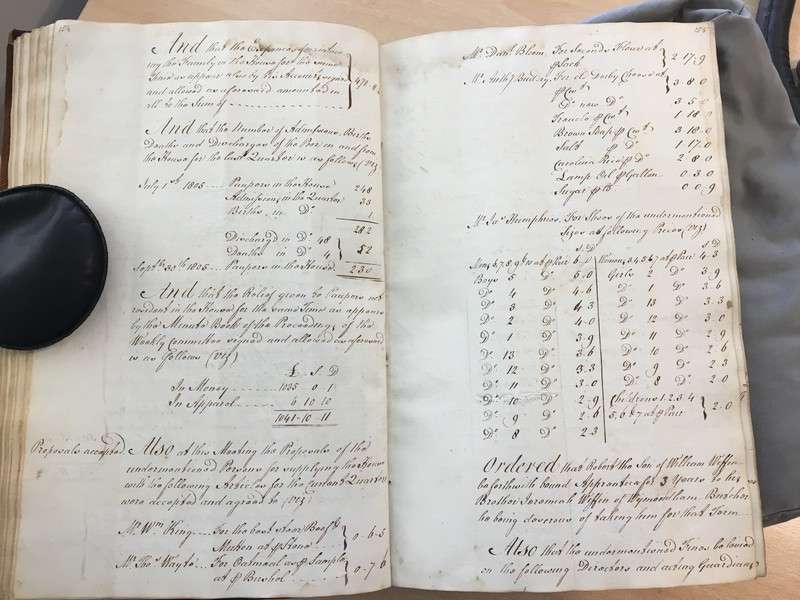 124
And that the Expences of maintain
ing the Family in the House for the same
time as appears also by the Accounts signed
and allowed as aforesaid amounted in
all to the Sum of
And that the Number of Admissions, Births
Deaths and Discharges of the Poor in and from
the House for the last Quarter is as follows (Viz)
July 1st 1805 Paupers in the House 248
Admissions in the Quarter 33
Births in Do. 1
282
Discharg'd in Do. 48
Deaths in Do. 4 } 52
Septr. 30th 1805 Paupers in the House 230
And that the Relief given to Paupers not
resident in the House for the same time as appears
by the Minute Book of the Proceedings of the
Weekly Committee signed and allowed as aforesaid
is as follows (Viz)
£ S D
In Money 1035 0 1
In Apparel 6 10 10
1041 10 11
Proposals accepted Also at this Meeting the Proposals of the
undermentioned Persons for supplying the House
with the following Articles for the current Quarter
were accepted and agreed to (Viz)
Mr. Wm. King For the best Beef &
Mutton at ⅌ Stone } 0 6 5
Mr. Thos. For Oatmeal as ⅌ Sample
at ⅌ Bushel } 0 7 6
125
Mr. Danl. Bloom For Seconds Flour at
⅌ Sack } 2 17 9
Mr. Anthy. For old Derby Cheese at
⅌ Cwt. } 3 8 0
Do. new Do. 3 5 0
Treacle ⅌ Cwt. 1 18 0
Brown Soap ⅌ Cwt. 3 18 0
Salt ⅌ Do. 1 17 0
Carolina Rice ⅌ Do. 2 8 0
Lamp Oil ⅌ Gallon 0 3 0
Sugar ⅌ lb. 0 0 9
Mr. Jas. Humphries For Shoes of the undermentioned
Sizes at following Prices (Viz)
S. D S D
Mens 6, 7, 8, 9 & 10 at ⅌ Pair Womens 3, 4, 5, 6, 7 at ⅌ Pair 4 3
Boys 5 Do. 5 0 Girls 2 Do. 3 9
Do. 4 Do. 4 6 Do. 1 Do. 3 6
Do. 3 Do. 4 3 Do. 13 Do. 3 3
Do. 2 Do. 4 0 Do. 12 Do. 3 0
Do. 1 Do. 3 9 Do. 11 Do. 2 9
Do. 13 Do. 3 6 Do. 10 Do. 2 6
Do. 12 Do. 3 3 Do. 9 Do. 2 3
Do. 11 Do. 3 0 Do. 8 Do. 2 0
Do. 10 Do. 2 9 Childrens 1 2 3 4
Do. 9 Do. 2 6 5, 6 & 7 at ⅌ Pair } 2 0
Do. 8 Do. 2 3
Ordered that Robert the Son of William Wiffen
be forthwith bound Apprentice for 3 Years to his
Brother Jeremiah Wiffen of Wymondham Butcher
he being desirous of taking him for that Term
Also that the undermentioned Fines be levied
on the following Directors and acting Guardians